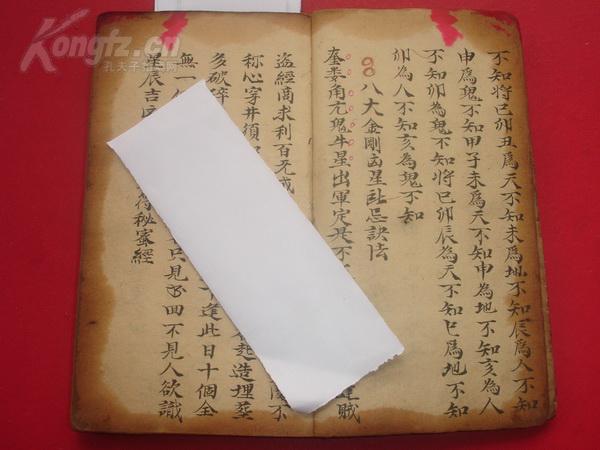 Kongfz.cn
孔夫子旧书网
不知将巳卯丑為天不知未為地不知辰為人不知
申為鬼不知甲子未為天不知申為地不知亥為人
不知卯為鬼不知将巳卯辰為天不知巳為地不知
卯為人不知亥為鬼不知
八大金剛凶星趾忌訣法
奎娄角亢鬼牛星出軍定是不
賊
盗經商求利百无或
不
称心穿井須
起造埋葬
多破碎
逢此日十個全
無一
只見 回不見人欲識
星辰吉
符秘蜜經